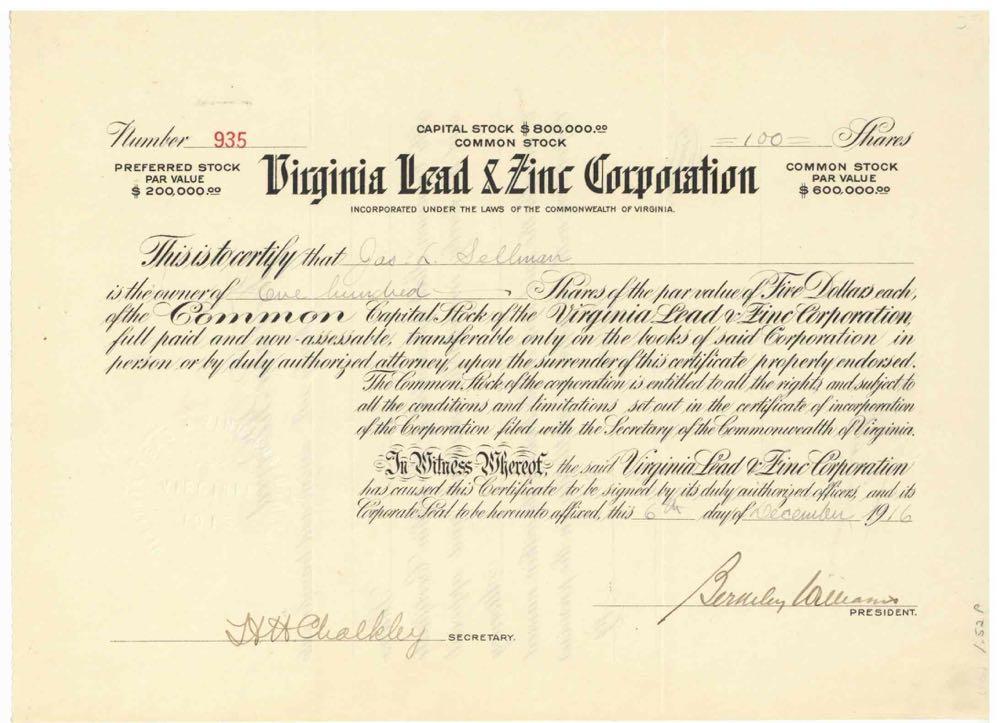 Number 935
CAPITAL STOCK $800,000.00
COMMON STOCK
=100= Shares
PREFERRED STOCK
PAR VALUE
$200,000.00
Virginia Lead & Zinc Corporation
COMMON STOCK
PAR VALUE
$600,000.00
INCORPORATED UNDER THE LAWS OF THE COMMONWEALTH OF VIRGINIA.
This is to certify that Jas. L. Sellman
is the owner of One hundred Shares of the par value of Five Dollars each,
of the Common Capital Stock of the Virginia Lead & Zinc Corporation,
full paid and non-assessable, transferable only on the books of said Corporation in
person or by duly authorized attorney, upon the surrender of this certificate properly endorsed.
The Common Stock of the corporation is entitled to all the rights, and subject to
all the conditions and limitations, set out in the certificate of incorporation
of the Corporation filed with the Secretary of the Commonwealth of Virginia.
In Witness Whereof, the said Virginia Lead & Zinc Corporation
has caused this Certificate to be signed by its duly authorized officers, and its
Corporate Seal to be hereunto affixed, this 6th day of December 1916
Berkeley Williams
PRESIDENT.
H H Chalkley SECRETARY.
1.52 P